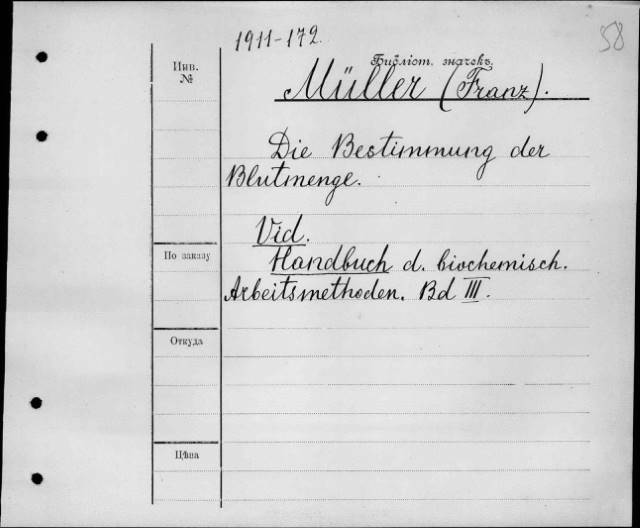 1911-172.
58
Библіот. значекъ.
Инв.
№
Müller (Franz).
Die Bestimmung der
Blutmenge.
Vid.
Handbuch d. biochemisch.
Arbeitsmethoden. Bd III.
По заказу
Откуда
Цѣна